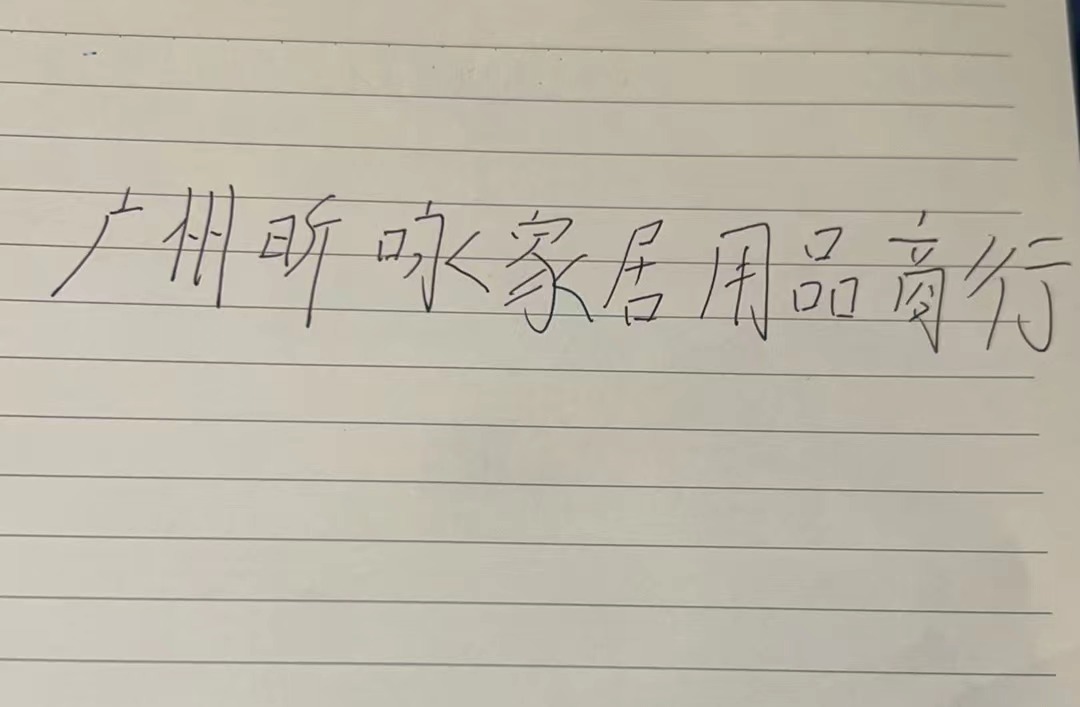 广州昕咏家居用品商行